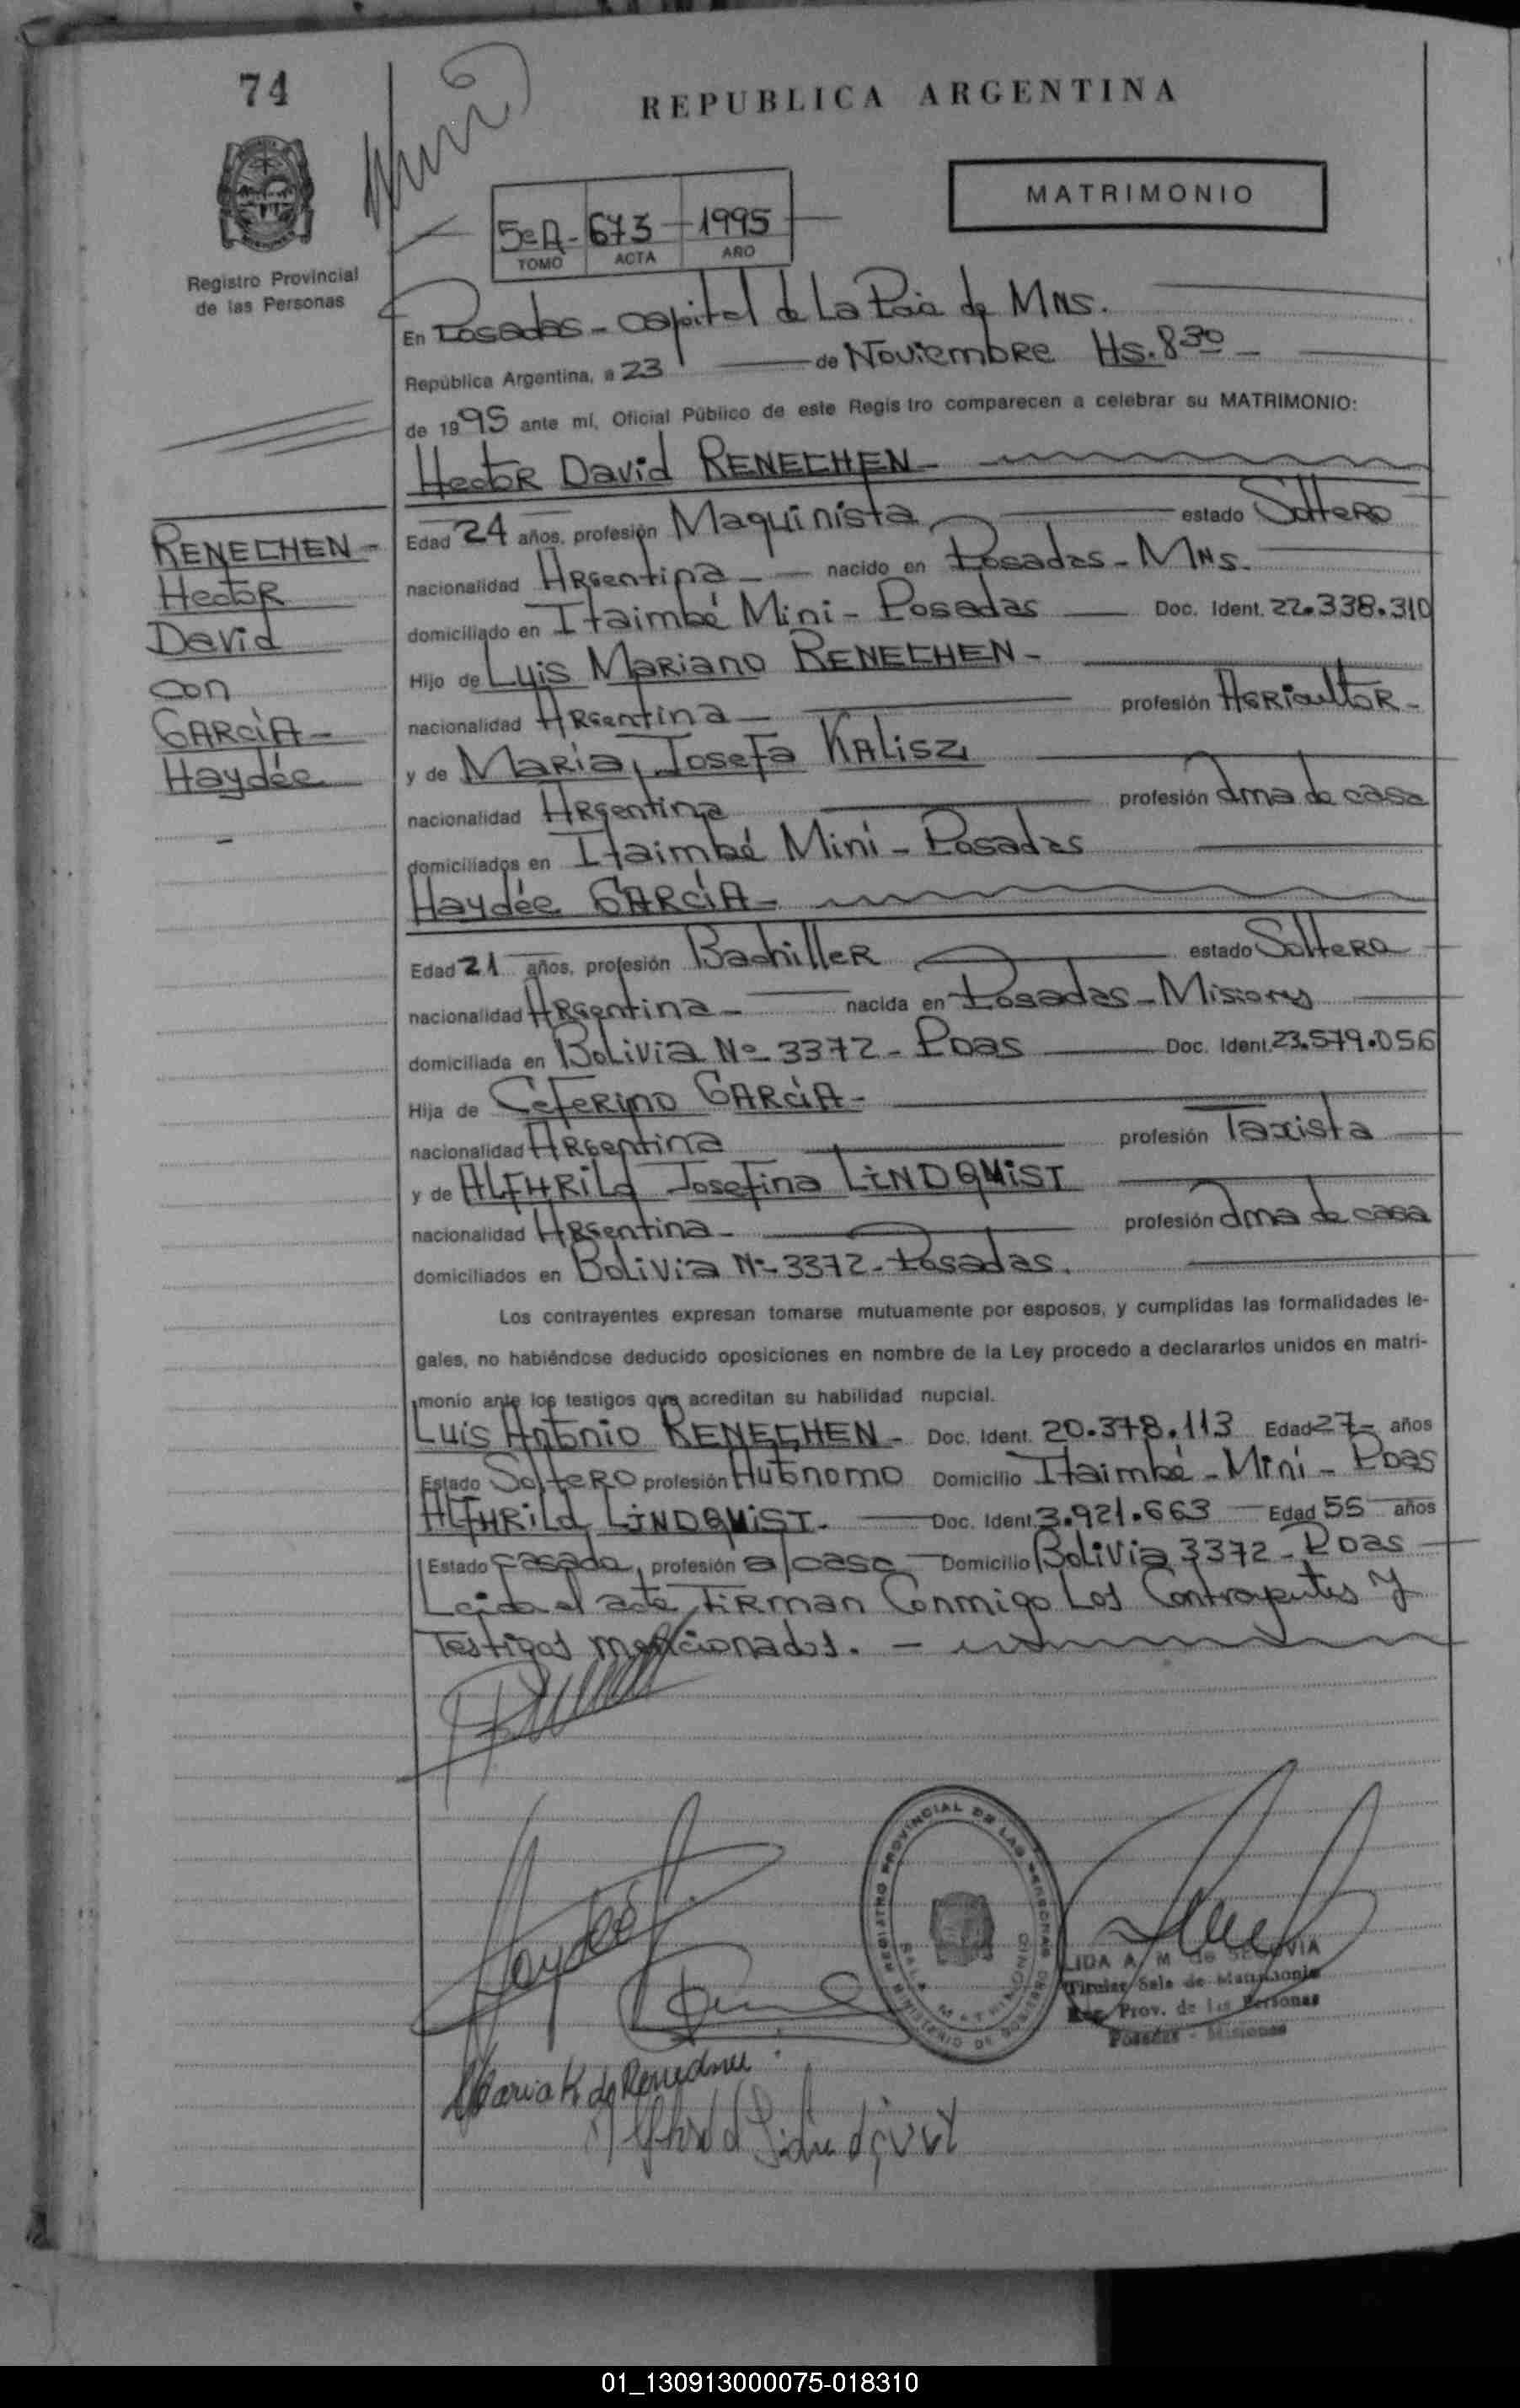 74
REPUBLICA ARGENTINA
MATRIMONIO
5º A - 673 - 1995
TOMO ACTA AÑO
Registro Provincial
de las Personas
En Posadas - capital de La Pcia de MNS.
República Argentina, a 23 de Noviembre Hs. 8 30
de 1995 ante mí, Oficial Público de este Registro comparecen a celebrar su MATRIMONIO:
Hector David RENECHEN -
Edad 24 años, profesión Maquinista estado Soltero
nacionalidad Argentina - nacido en Posadas - MNS.
domiciliado en Itaimbé Mini - Posadas Doc. Ident. 22.338.310
Hijo de Luis Mariano RENECHEN -
nacionalidad Argentina - profesión Agricultor -
y de Maria Josefa KALISZ
nacionalidad Argentina profesión ama de casa
domiciliados en Itaimbé Mini - Posadas
Haydée GARCÍA -
Edad 21 años, profesión Bachiller estado Soltera
nacionalidad Argentina - nacida en Posadas - Misiones
domiciliada en Bolivia Nº 3372 - Pdas Doc. Ident. 23.579.056
Hija de Ceferino GARCÍA -
nacionalidad Argentina profesión Taxista
y de ALFHRILd Josefina LINDQUIST
nacionalidad Argentina - profesión ama de casa
domiciliados en Bolivia Nº 3372 - Posadas.
Los contrayentes expresan tomarse mutuamente por esposos, y cumplidas las formalidades le-
gales, no habiéndose deducido oposiciones en nombre de la Ley procedo a declararlos unidos en matri-
monio ante los testigos que acreditan su habilidad nupcial.
Luis Antonio RENECHEN - Doc. Ident. 20.378.113 Edad 27 - años
Estado Soltero profesión Autonomo Domicilio Itaimbé - Mini - Pdas
ALFHRILd LINDQUIST. Doc. Ident. 3.921.663 Edad 55 años
Estado casada, profesión a/casa - Domicilio Bolivia 3372 - Pdas
Leida el acta, Firman Conmigo Los Contrayentes y
Testigos mencionados. -
RENECHEN -
Hector
David
con
GARCÍA -
Haydée
-
Haydeé
REGISTRO PROVINCIAL DE LAS PERSONAS
MINISTERIO DE GOBIERNO
SALA MATRIMONIO
LIDA A. M. de SEGOVIA
Titular Sala de Matrimonio
Reg. Prov. de las Personas
Posadas - Misiones
Maria K. de Renechen
Alfhrild Lindquist
01_130913000075-018310